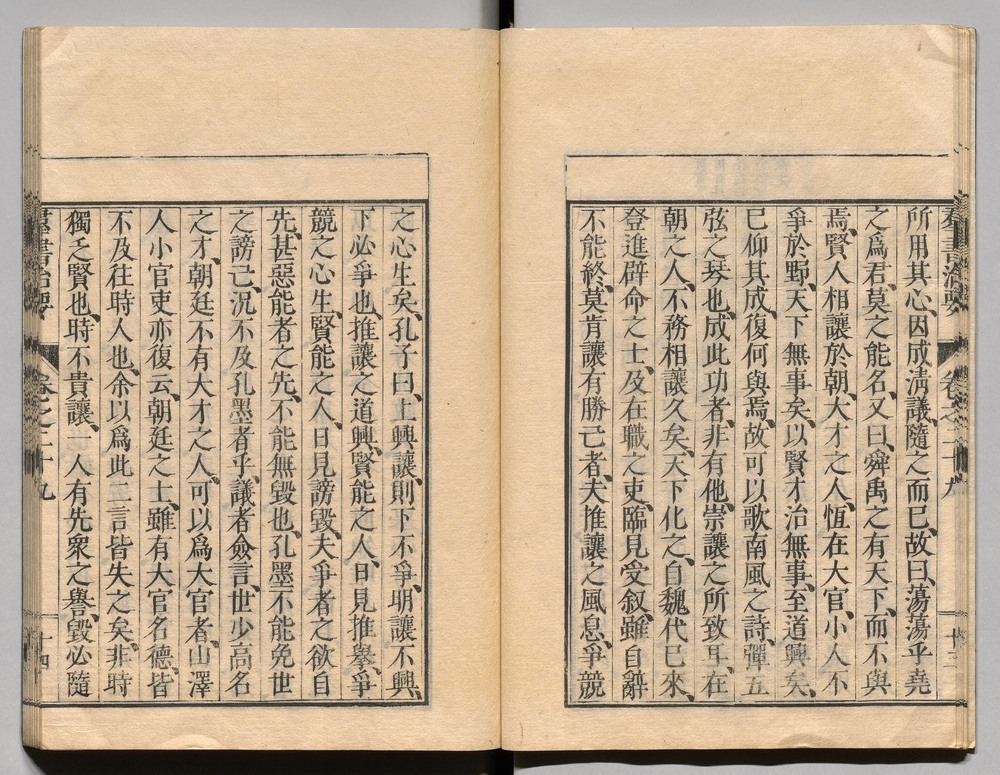 羣書治要 卷之二十九 十三
所用其心、因成清議、隨之而已、故曰、蕩蕩乎堯
之爲君、莫之能名、又曰、舜禹之有天下、而不與
焉、賢人相讓於朝、大才之人、恆在大官、小人不
爭於野、天下無事矣、以賢才治無事、至道興矣、
已仰其成、復何與焉、故可以歌南風之詩、彈五
弦之琴也、成此功者、非有他、崇讓之所致耳、在
朝之人、不務相讓久矣、天下化之、自魏代已來、
登進辟命之士、及在職之吏、臨見受叙、雖自辭
不能終、莫肯讓有勝己者、夫推讓之風息、爭競
之心生矣、孔子曰、上興讓、則下不爭、明讓不興、
下必爭也、推讓之道興、賢能之人、日見推擧、爭
競之心生、賢能之人、日見謗毀、夫爭者之欲自
先、甚惡能者之先、不能無毀也、孔墨不能免世
之謗己、況不及孔墨者乎、議者僉言、世少高名
之才、朝廷不有大才之人、可以爲大官者、山澤
人小官吏亦復云、朝廷之士、雖有大官名德、皆
不及往時人也、余以爲此二言皆失之矣、非時
獨乏賢也、時不貴讓、一人有先衆之譽、毀必隨
羣書治要 卷之二十九 十四